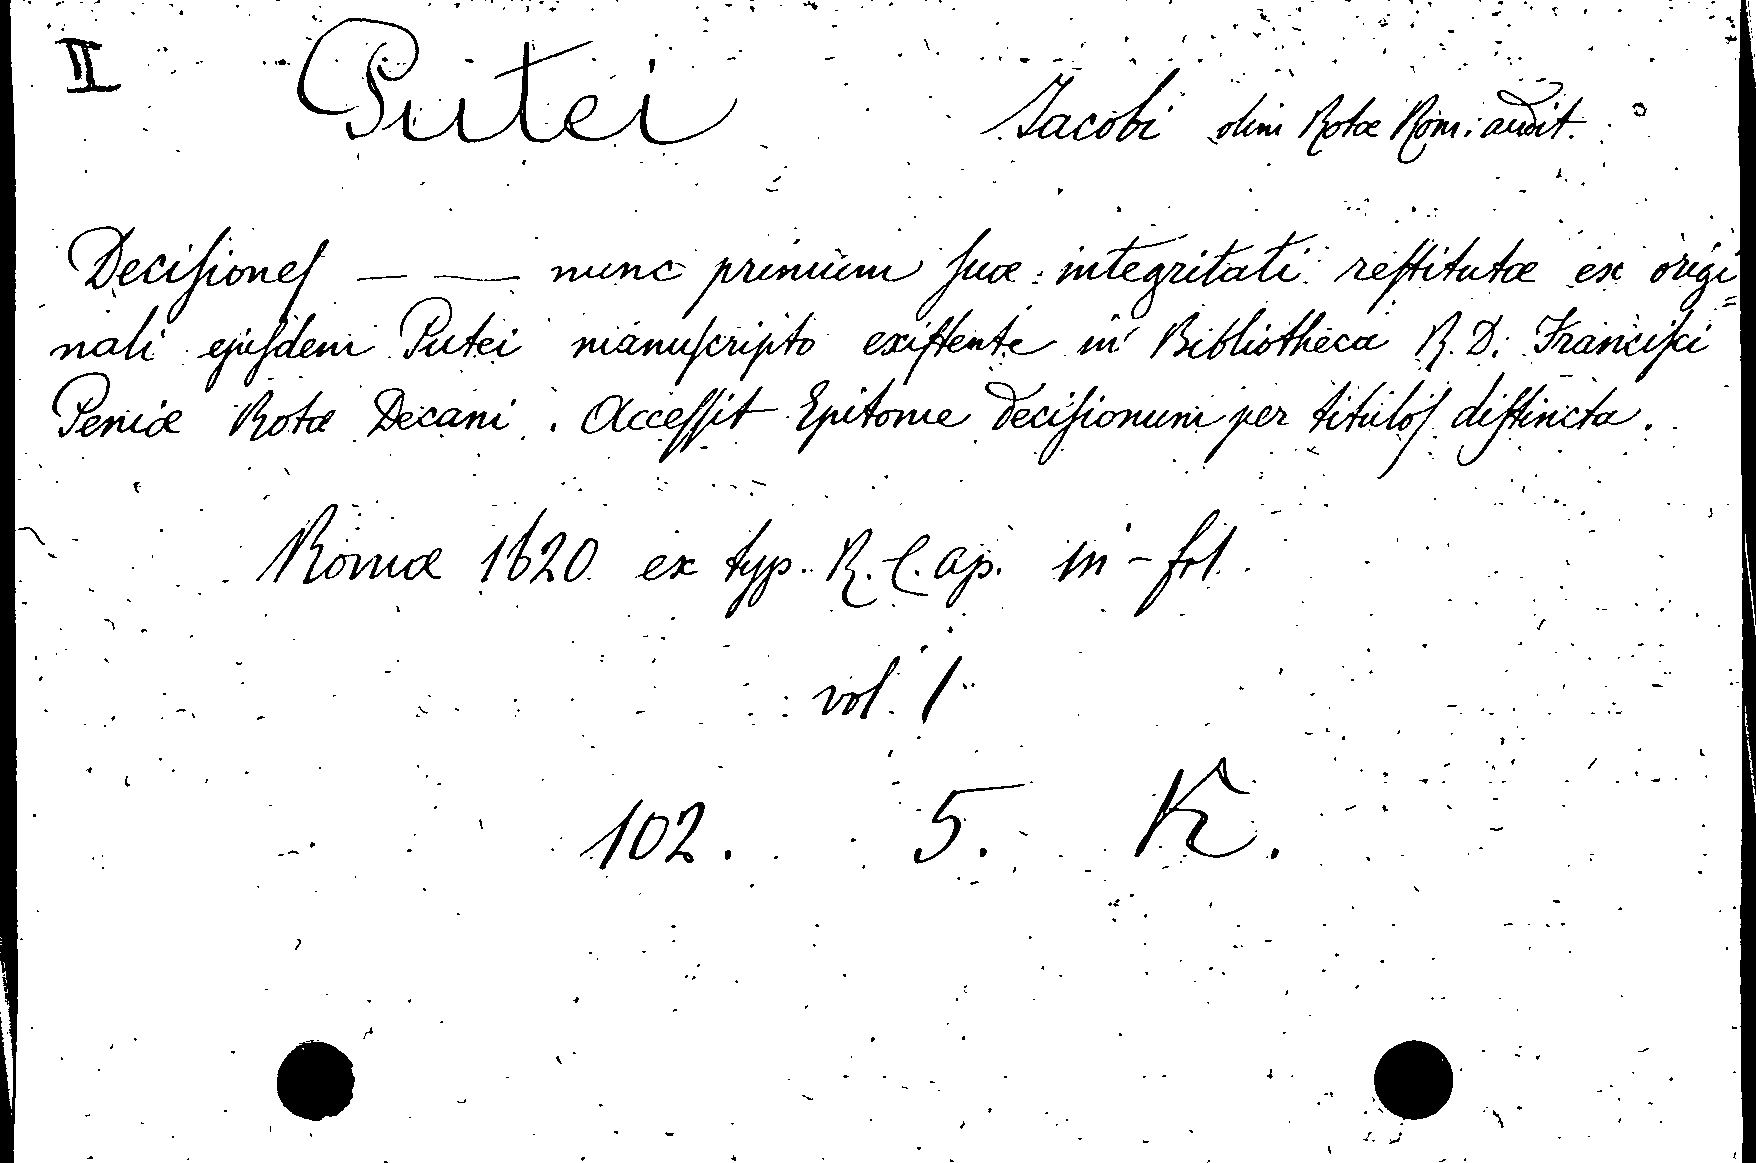 II Putei Jacobi olim Rotæ Rom. audit.
Deciſioneſ — — nunc primum ſuæ integritati reſtitutæ ex origi=
nali ejuſdem Putei manuſcripto exiſtente in Bibliotheca R. D. Franciſci
Peniæ Rotæ Decani. Acceſſit Epitome deciſionum per tituloſ diſtincta.
Romæ 1620 ex typ. R. C. Ap. in-fol.
vol. 1
102. 5. K.